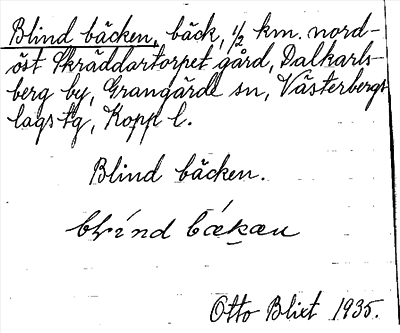 Blind bäcken, bäck, ½ km. nord-
öst Skräddartorpet gård, Dalkarls-
berg by, Grangärde sn, Västerbergs
lags tg, Kopp l.
Blind bäcken.
Otto Blixt 1935.